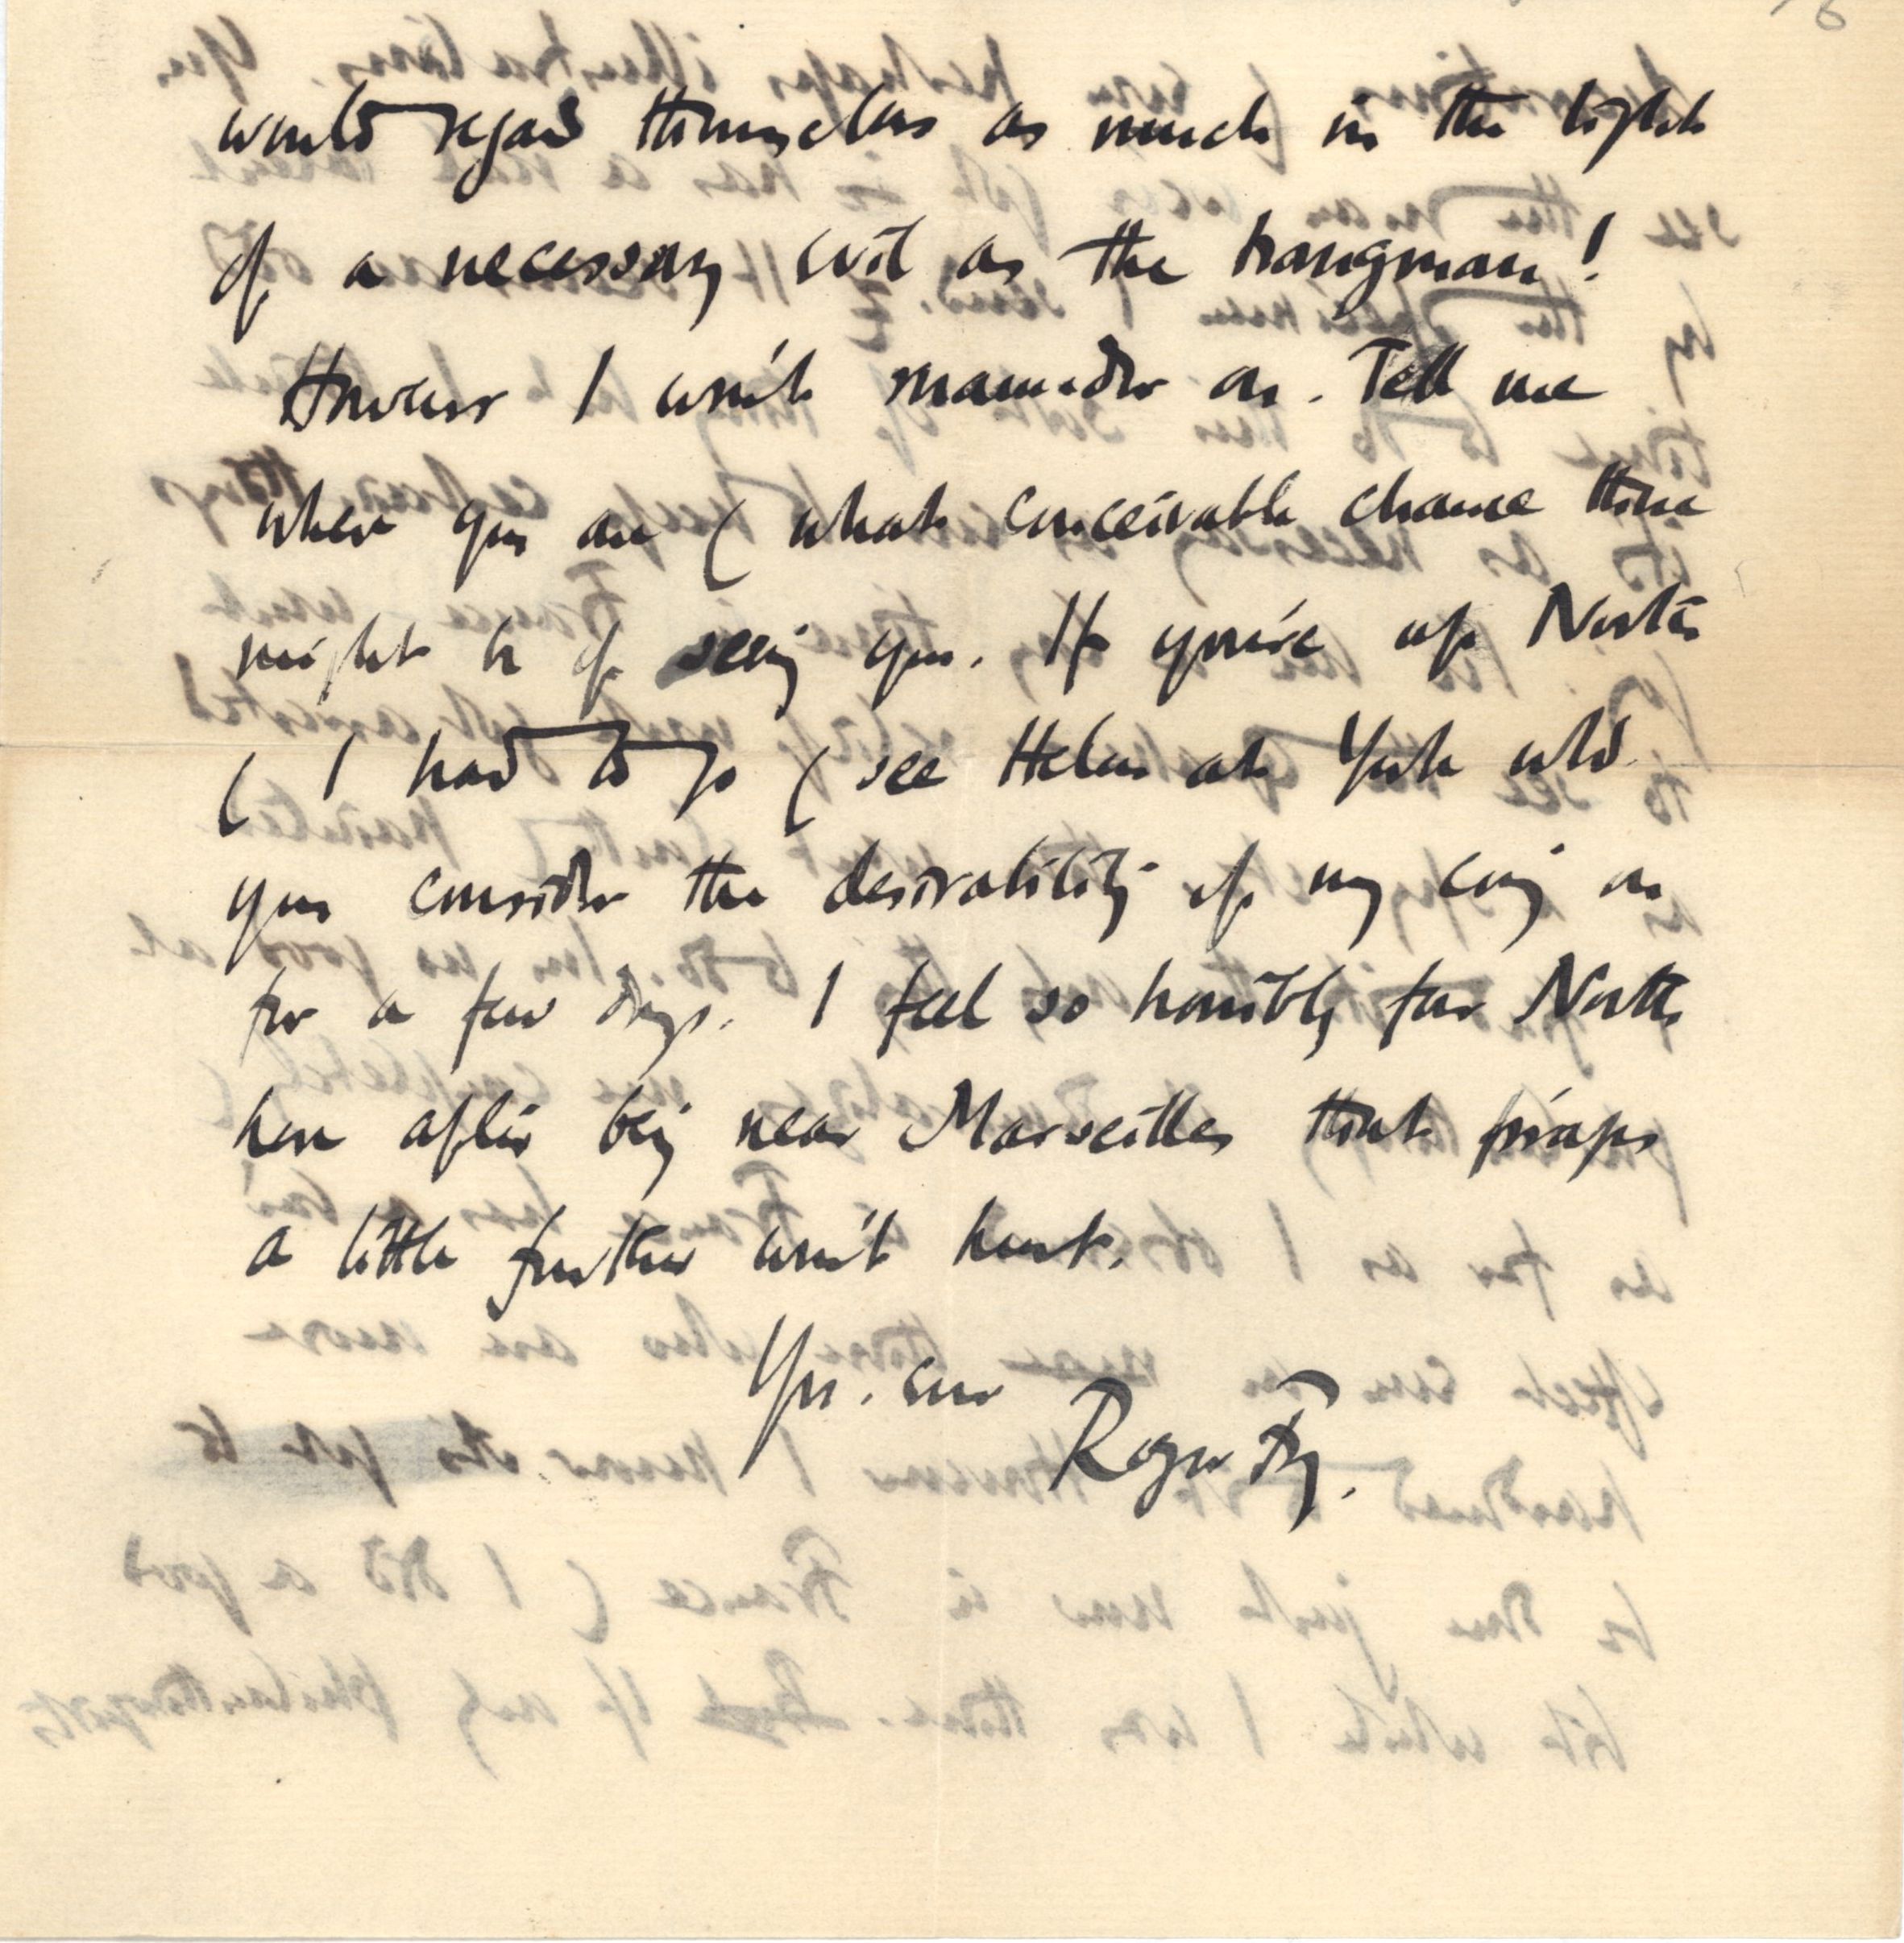 would regard themselves as much in the light
of a necessary evil as the hangman!
However I won't maunder on. Tell me
where you are ( what conceivable chance there
might be of seeing you. If you're up North
( I had to go ( see Helen at York wld.
you consider the desirability of my coming on
for a few days. I feel so horribly far North
here after being near Marseilles that perhaps
a little further won't hurt.
Yrs. ever
Roger Fry.